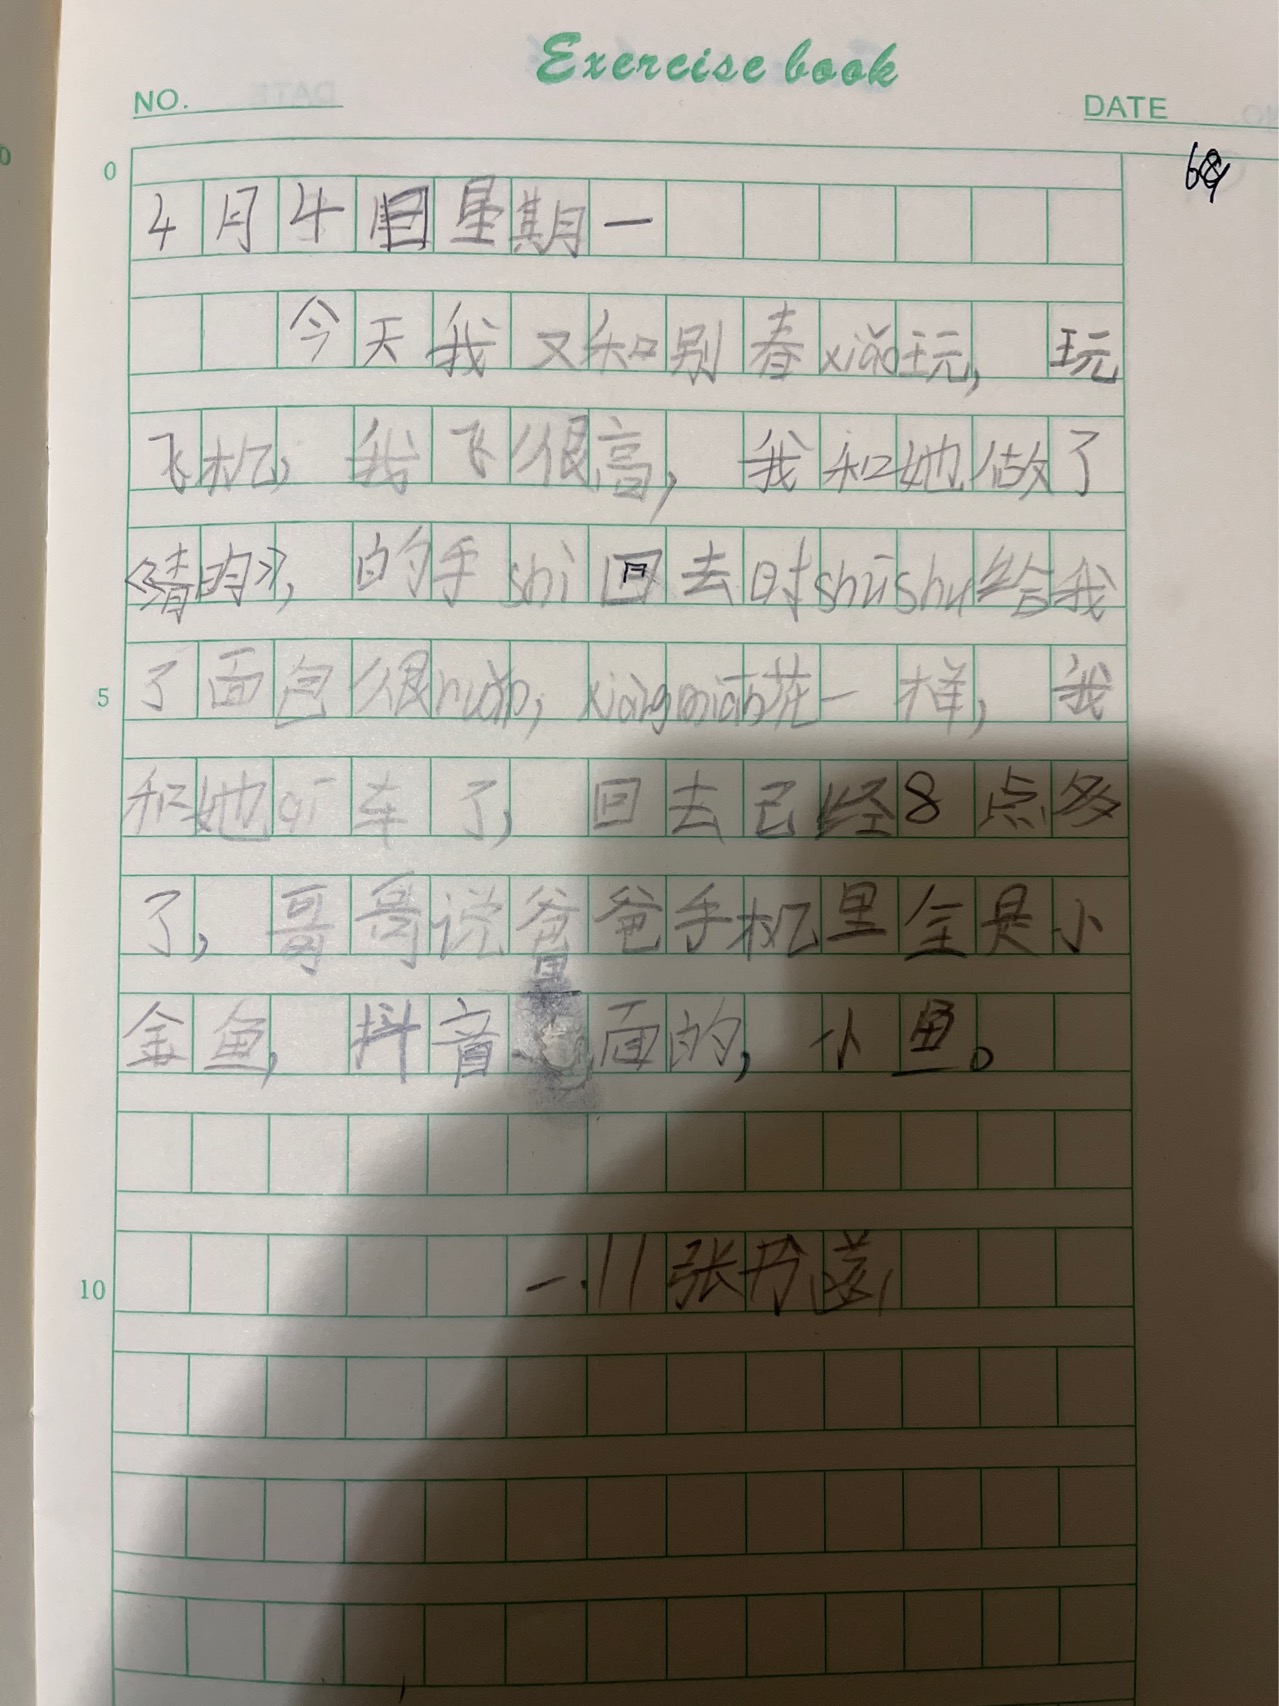 Exercise book
NO.
DATE
0
4月4日星期一
今天我又和别春xiǎo玩,玩
飞机,我飞很高,我和她做了
《清的》,的手shì回去时shūshu给我
了面包很nuǎn,xiàngmián花一样,我
5
和她qí车了,回去已经8点多
了,哥哥说爸爸手机里全是小
金鱼,抖音里面的,小鱼。
10
一.11张丹